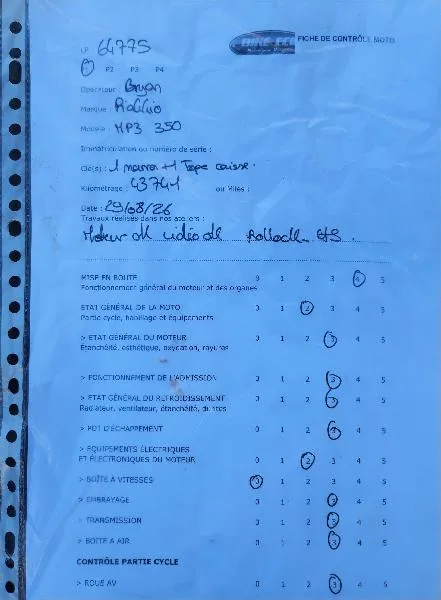 LP 64775
FICHE DE CONTRÔLE MOTO
P2 P3 P4
Opérateur : Bryan
Marque : Piaggio
Modèle : MP3 350
Immatriculation ou numéro de série :
Clé(s) : 1 + 1 Tape caisse.
Kilométrage : 43741 ou Miles :
Date : 29/08/26
Travaux réalisés dans nos ateliers :
Moteur ok vidéo ok
MISE EN ROUTE 0 1 2 3 4 5
Fonctionnement général du moteur et des organes
ETAT GÉNÉRAL DE LA MOTO 0 1 2 3 4 5
Partie cycle, habillage et équipements
> ETAT GÉNÉRAL DU MOTEUR 0 1 2 3 4 5
Étanchéité, esthétique, oxydation, rayures
> FONCTIONNEMENT DE L'ADMISSION 0 1 2 3 4 5
> ETAT GÉNÉRAL DU REFROIDISSEMENT 0 1 2 3 4 5
Radiateur, ventilateur, étanchéité, durites
> POT D'ÉCHAPPEMENT 0 1 2 3 4 5
> EQUIPEMENTS ÉLECTRIQUES
ET ÉLECTRONIQUES DU MOTEUR 0 1 2 3 4 5
> BOÎTE A VITESSES 0 1 2 3 4 5
> EMBRAYAGE 0 1 2 3 4 5
> TRANSMISSION 0 1 2 3 4 5
> BOITE A AIR 0 1 2 3 4 5
CONTRÔLE PARTIE CYCLE
> ROUE AV 0 1 2 3 4 5